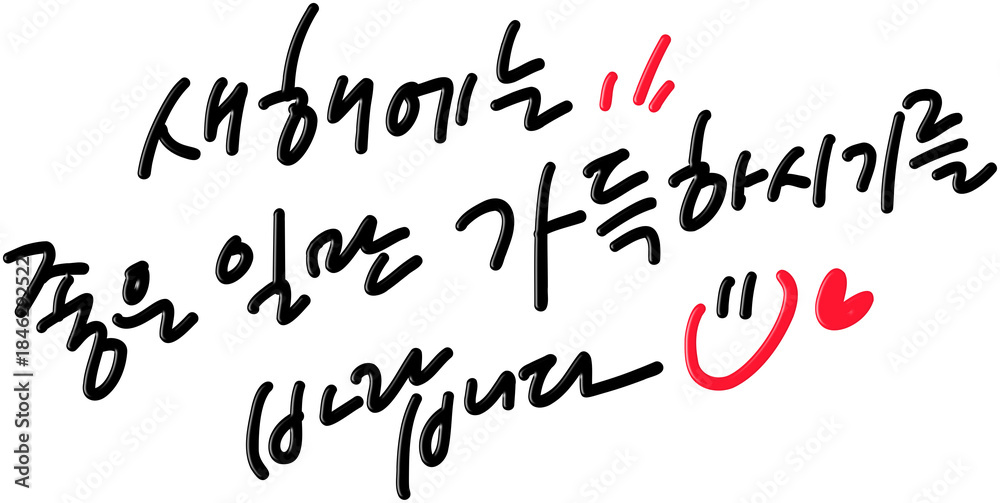 새해에는
좋은 일만 가득하시기를
바랍니다
Adobe Stock | #1846292522